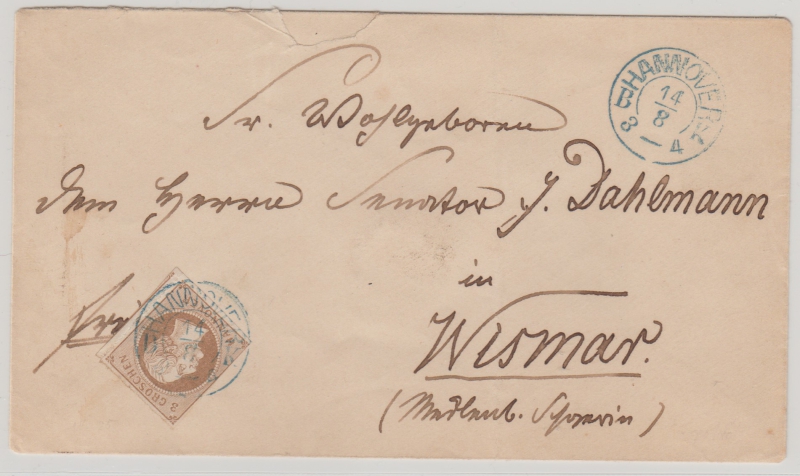 HANNOVER
14
8
3 — 4
Sr. Wohlgeboren
dem Herrn Senator J. Dahlmann
in
Wismar.
(Mecklenb. Schwerin)
HANNOVER
14
8
3 GROSCHEN